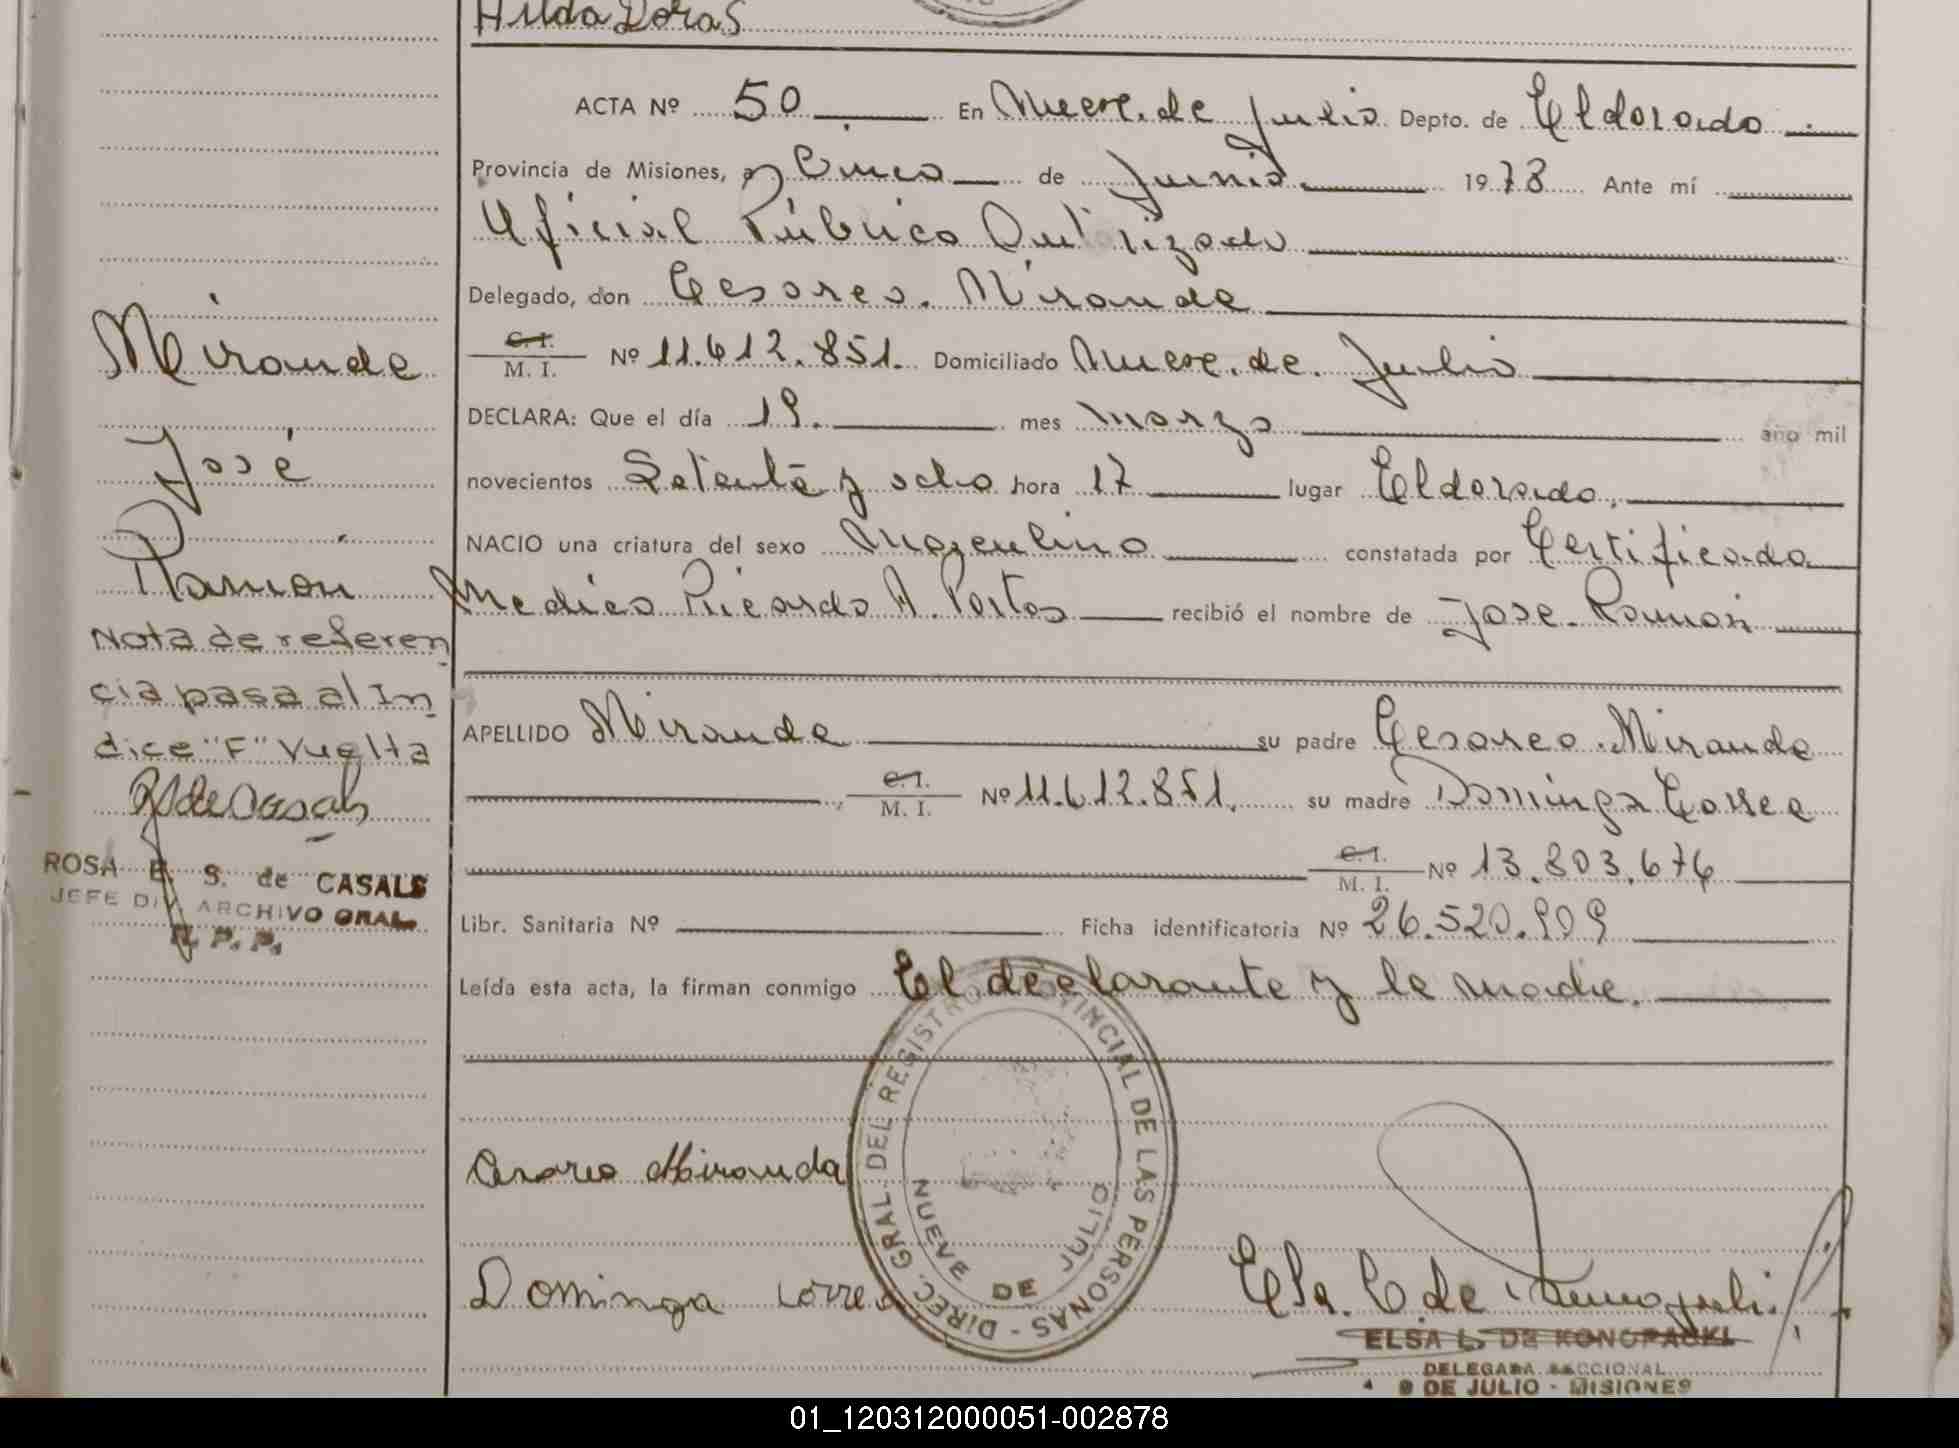 Hilda Doras
ACTA Nº 50 En Nueve de Julio Depto. de Eldorado
Provincia de Misiones, a Cinco de Junio 1978 Ante mí
Oficial Público Autorizado
Delegado, don Cesareo Miranda
C. I.
M. I. Nº 11.612.851. Domiciliado Nueve de Julio
DECLARA: Que el día 19. mes marzo año mil
novecientos Setenta y ocho hora 17 lugar Eldorado.
NACIO una criatura del sexo Masculino constatada por Certificado
Medico Ricardo A. Portos recibió el nombre de Jose Ramon
APELLIDO Miranda su padre Cesareo Miranda
C. I.
M. I. Nº 11.612.851. su madre Dominga Correa
C. I.
M. I. Nº 13.803.676
Libr. Sanitaria Nº Ficha identificatoria Nº 26.520.909
Leída esta acta, la firman conmigo El declarante y la madre.
Miranda
José
Ramón
Nota de referen
cia pasa al In
dice "F" Vuelta
RSdeCasals
ROSA E. S. de CASALS
JEFE DIV. ARCHIVO GRAL.
R. P. P.
Cesareo Miranda
Dominga Correa
DIREC. GRAL. DEL REGISTRO PROVINCIAL DE LAS PERSONAS
NUEVE DE JULIO
Elsa L. de Konopacki
ELSA L. DE KONOPACKI
DELEGADA SECCIONAL
9 DE JULIO - MISIONES
01_120312000051-002878